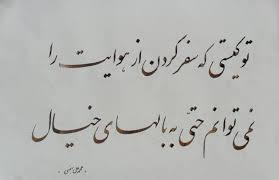 تو کیستی که سفر کردن از هوایت را
نمی توانم حتّی به بالهای خیال